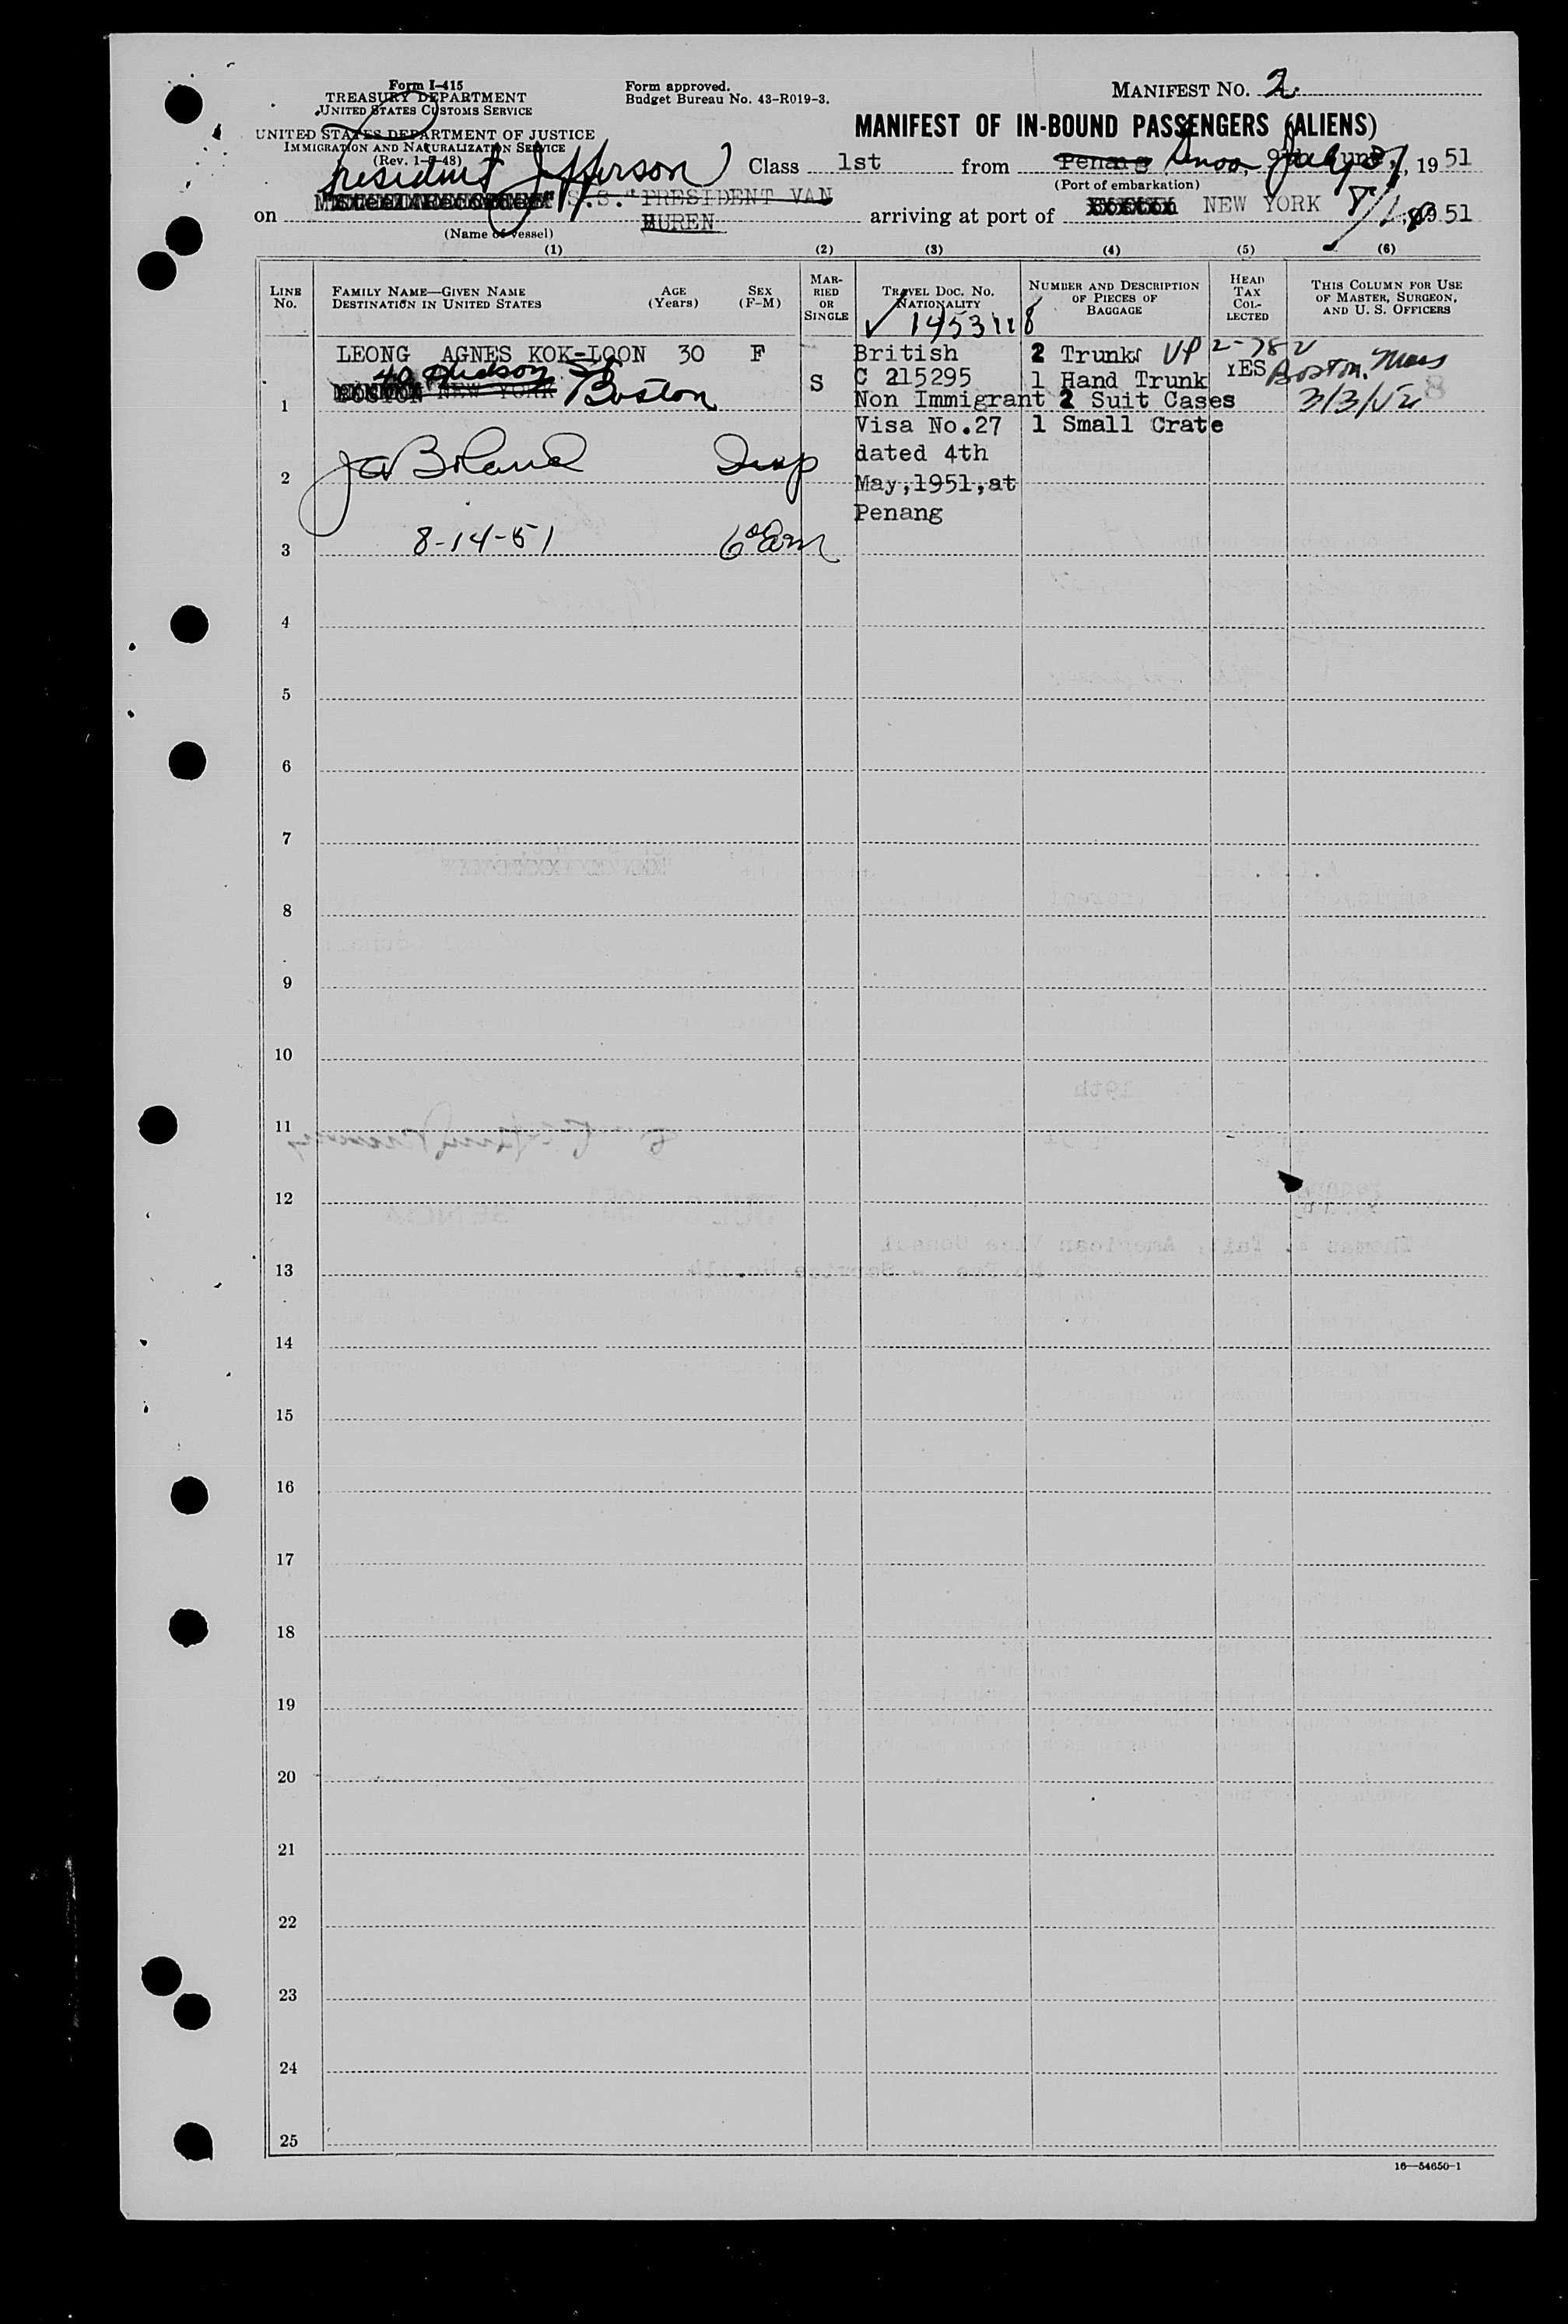 Form I-415
TREASURY DEPARTMENT
UNITED STATES CUSTOMS SERVICE
UNITED STATES DEPARTMENT OF JUSTICE
IMMIGRATION AND NATURALIZATION SERVICE
(Rev. 1-5-48)
Form approved.
Budget Bureau No. 43-R019-3.
MANIFEST NO. 2
MANIFEST OF IN-BOUND PASSENGERS (ALIENS)
President Jefferson
Class 1st from Penang July 1951
(Port of embarkation)
on S.S. "PRESIDENT VAN BUREN arriving at port of Boston NEW YORK 8/1 1951
(Name of vessel)
(1) (2) (3) (4) (5) (6)
LINE No.
FAMILY NAME—GIVEN NAME
DESTINATION IN UNITED STATES
AGE (Years)
SEX (F-M)
MARRIED OR SINGLE
TRAVEL DOC. NO.
NATIONALITY
NUMBER AND DESCRIPTION OF PIECES OF BAGGAGE
HEAD TAX COLLECTED
THIS COLUMN FOR USE OF MASTER, SURGEON, AND U. S. OFFICERS
LEONG AGNES KOK-LOON 30 F
40 Hudson St
BOSTON NEW YORK Boston
S
British
C 215295
Non Immigrant
Visa No.27
dated 4th
May,1951,at
Penang
2 Trunks
1 Hand Trunk
2 Suit Cases
1 Small Crate
YES
Boston, Mass
3/3/52
Insp
8-14-51
1
2
3
4
5
6
7
8
9
10
11
12
13
14
15
16
17
18
19
20
21
22
23
24
25
16—54650-1